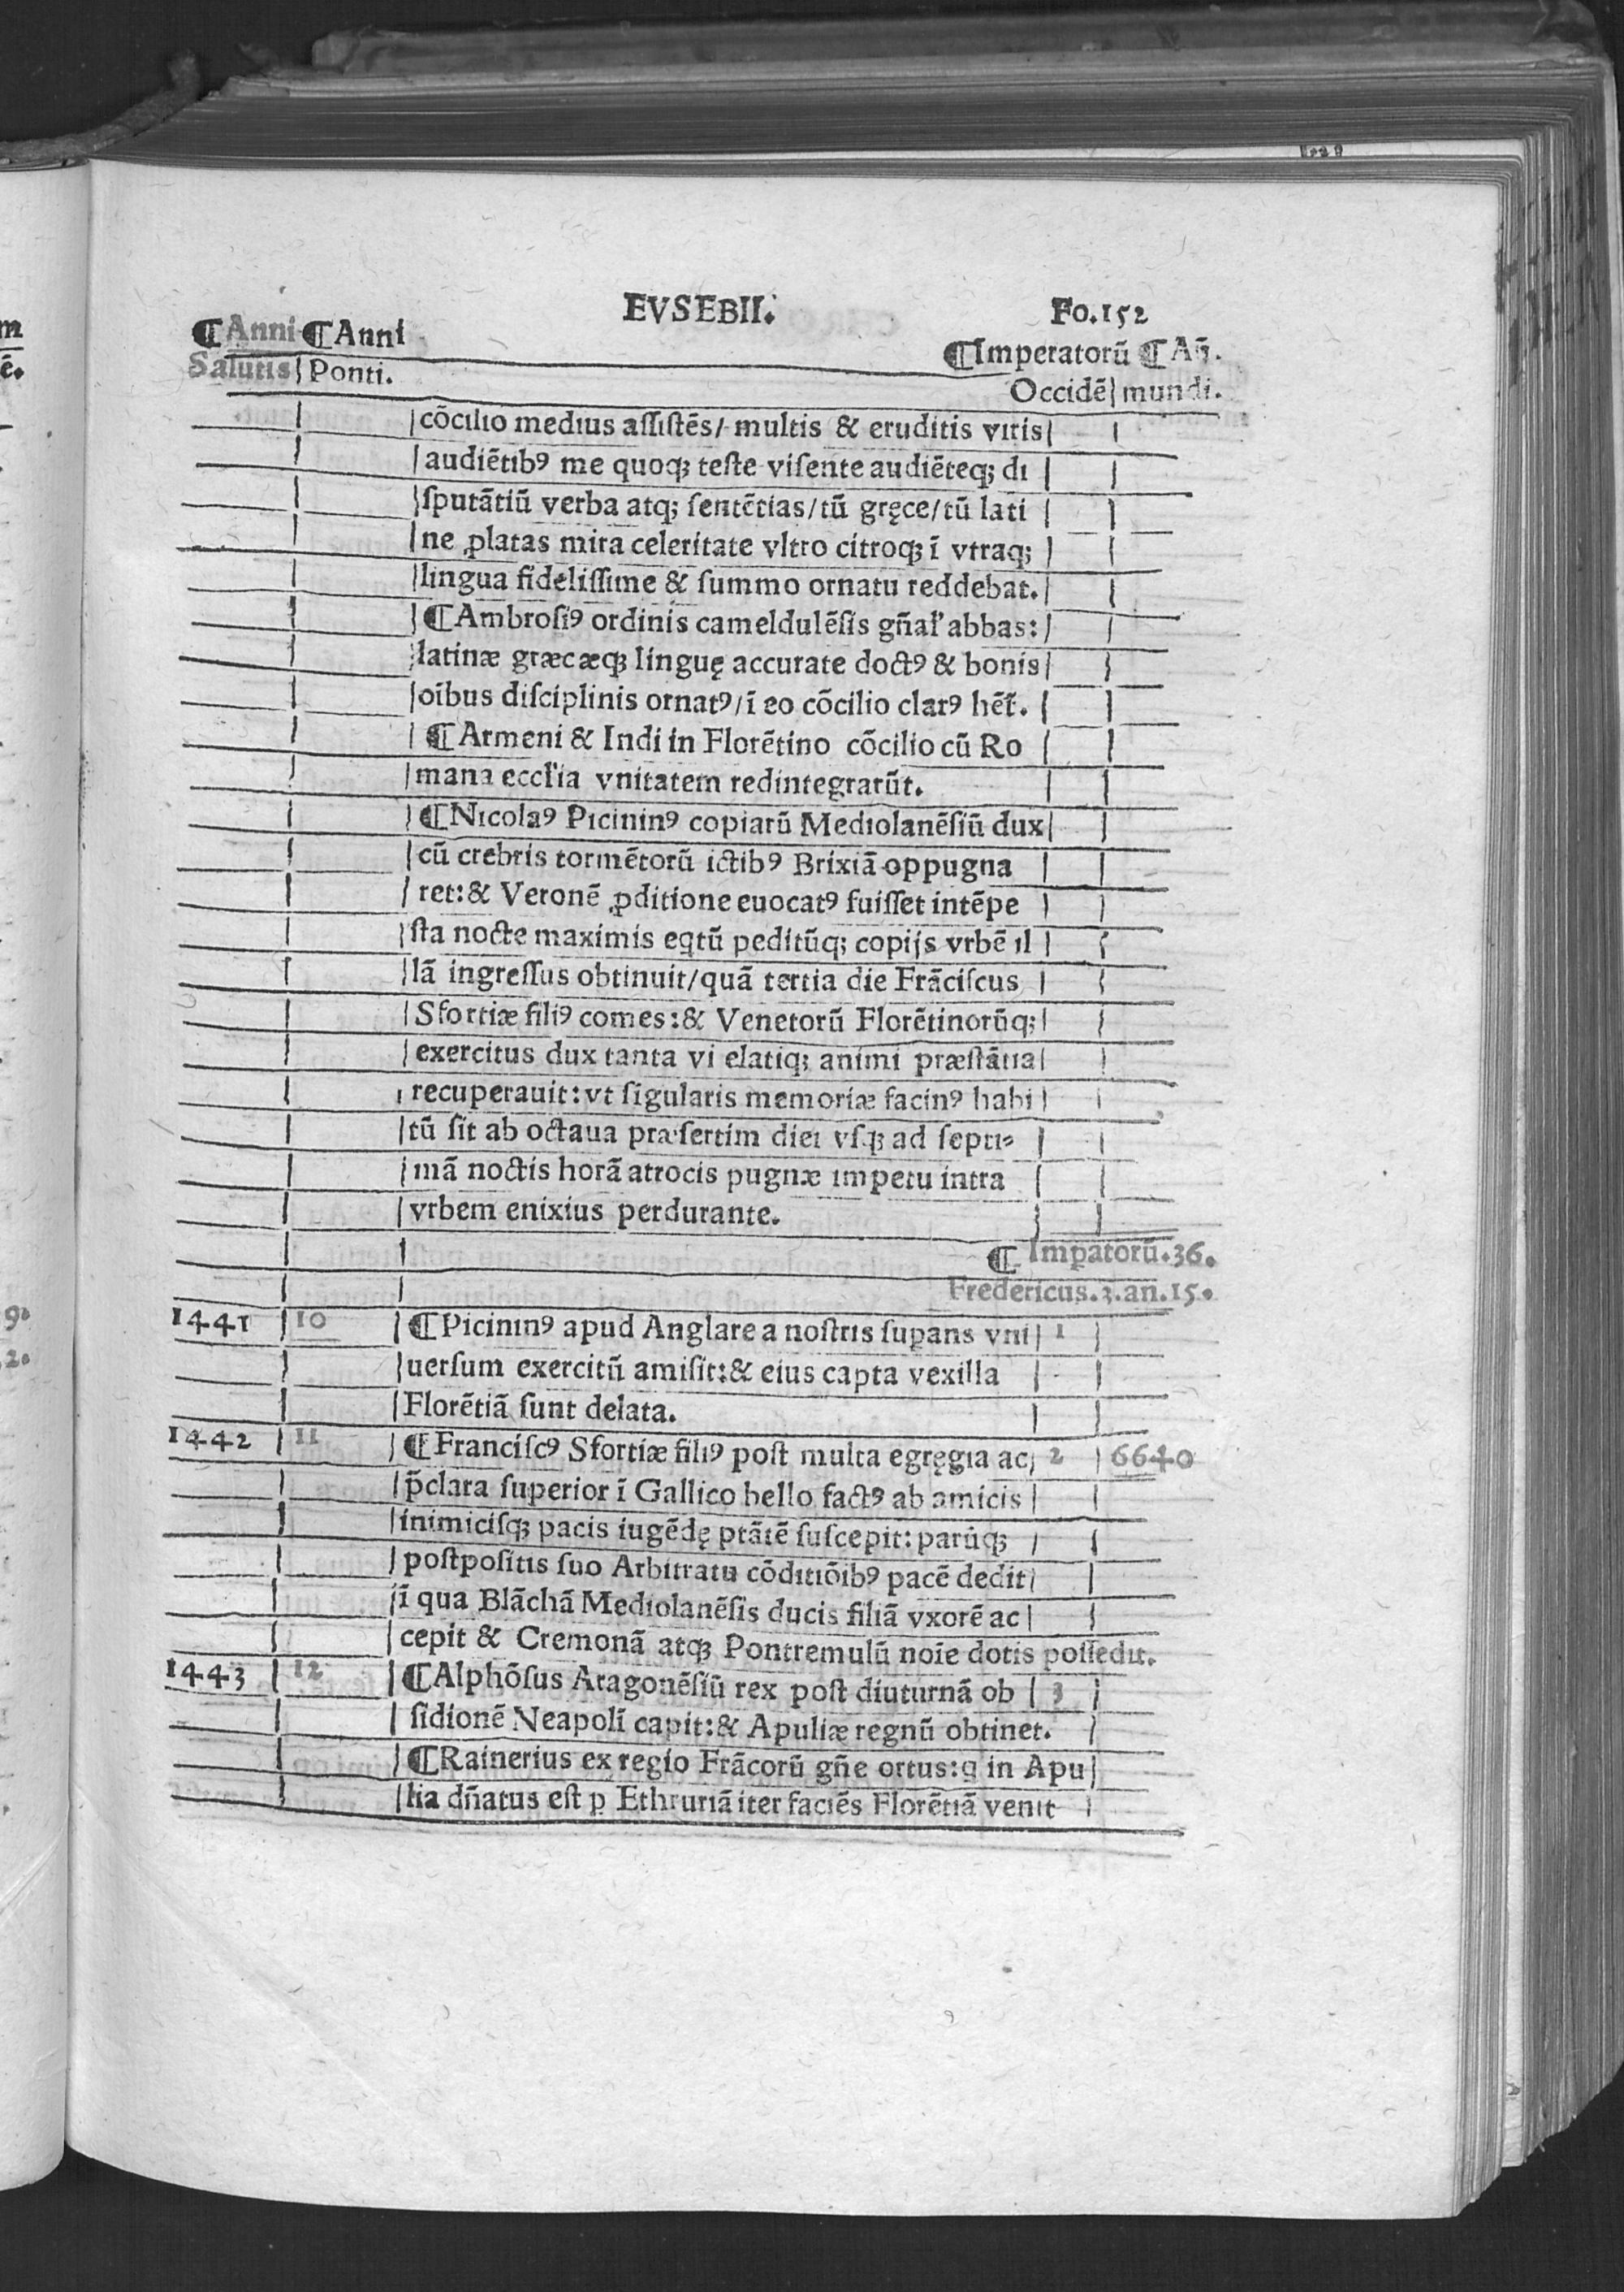 EVSEBII. Fo.152
¶Anni ¶Anni ¶Imperatorū ¶Añ.
Salutis Ponti. Occidē mundi.
cōcilio medius aſſiſtēs/ multis & eruditis viris
audiētibꝰ me quoqꝫ teſte viſente audiēteqꝫ di
ſputātiū verba atqꝫ ſentētias/tū gręce/tū lati
ne ꝓlatas mira celeritate vltro citroqꝫ ī vtraqꝫ
lingua fideliſſime & ſummo ornatu reddebat.
¶Ambroſiꝰ ordinis cameldulēſis gñal' abbas:
latinæ græcæqꝫ linguę accurate doctꝰ & bonis
oībus diſciplinis ornatꝰ/ī eo cōcilio clarꝰ hēt̄.
¶Armeni & Indi in Florētino cōcilio cū Ro
mana eccl'ia vnitatem redintegrarūt.
¶Nicolaꝰ Picininꝰ copiarū Mediolanēſiū dux
cū crebris tormētorū ictibꝰ Brixiā oppugna
ret:& Veronē ꝓditione euocatꝰ fuiſſet intēpe
ſta nocte maximis eq̄tū peditūqꝫ copijs vrbē il
lā ingreſſus obtinuit/quā tertia die Frāciſcus
Sfortiæ filiꝰ comes:& Venetorū Florētinorūqꝫ
exercitus dux tanta vi elatiqꝫ animi præſtātia
recuperauit:vt ſigularis memoriæ facinꝰ habi
tū ſit ab octaua præſertim diei vſqꝫ ad ſepti-
mā noctis horā atrocis pugnæ impetu intra
vrbem enixius perdurante.
¶ Imꝑatorū.36.
Fredericus.3.an.15.
1441 10 ¶Picininꝰ apud Anglare a noſtris ſuꝑans vni 1
uerſum exercitū amiſit:& eius capta vexilla
Florētiā ſunt delata.
1442 11 ¶Franciſcꝰ Sfortiæ filiꝰ poſt multa egręgia ac 2 6640
p̄clara ſuperior ī Gallico bello factꝰ ab amicis
inimiciſqꝫ pacis iugēdę ptātē ſuſcepit: parūqꝫ
poſtpoſitis ſuo Arbitratu cōditiōibꝰ pacē dedit
ī qua Blāchā Mediolanēſis ducis filiā vxorē ac
cepit & Cremonā atqꝫ Pontremulū noīe dotis poſſedit.
1443 12 ¶Alphōſus Aragonēſiū rex poſt diuturnā ob 3
ſidionē Neapolī capit:& Apuliæ regnū obtinet.
¶Rainerius ex regio Frācorū gñe ortus:q in Apu
lia dñatus eſt ꝑ Ethruriā iter faciēs Florētiā venit